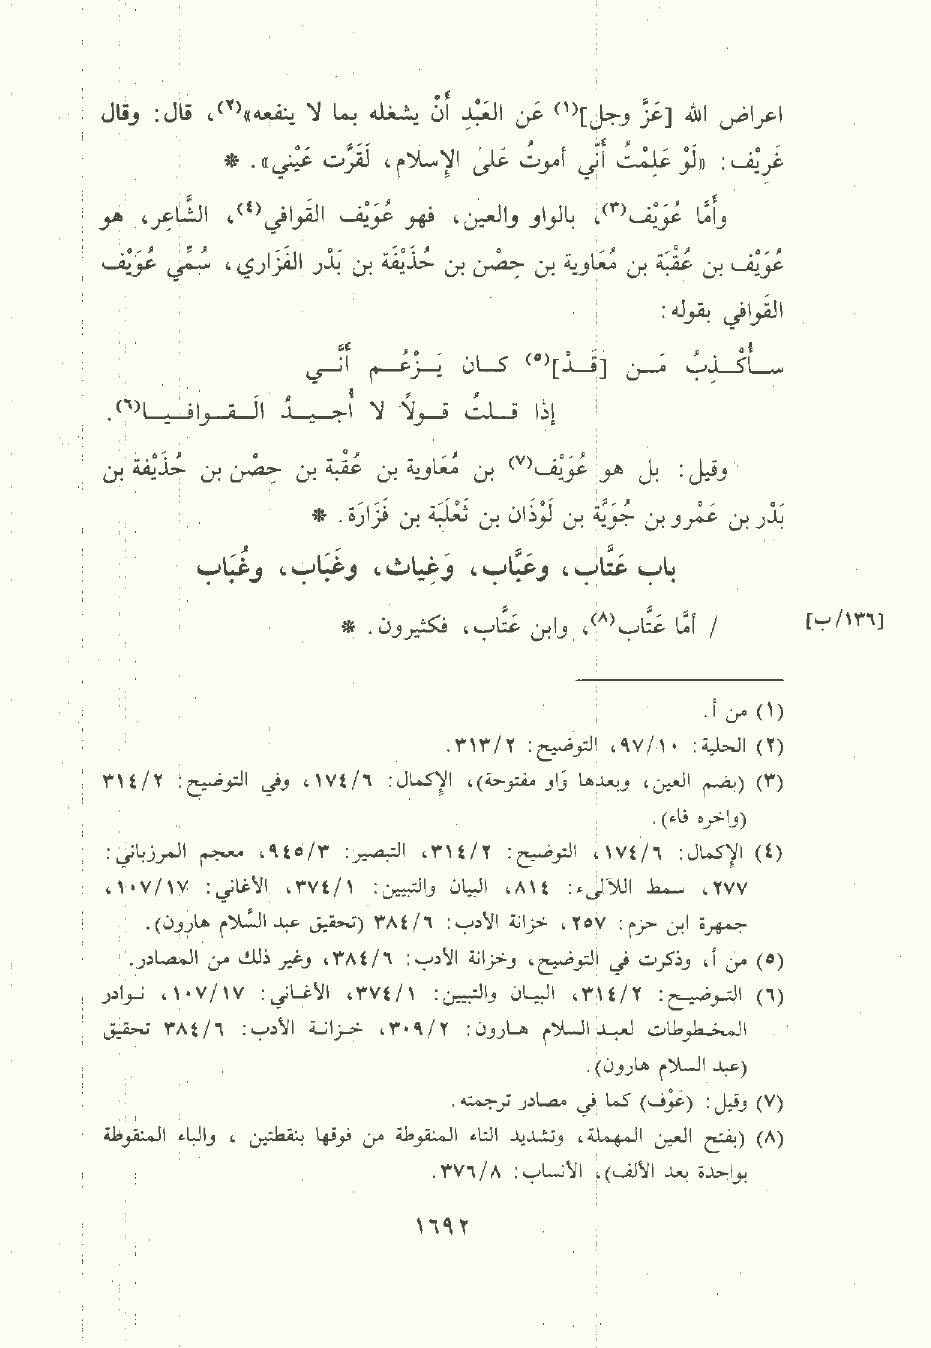 اعراض الله [عَزَّ وجل](١) عَن العَبْدِ أَنْ يشغله بما لا ينفعه»(٢)، قال: وقال
غَرِيْف: «لَوْ عَلِمْتُ أَنِّي أموتُ عَلىٰ الإسلام، لَقَرَّت عَيْني». *
وأمَّا عُوَيْف(٣)، بالواو والعين، فهو عُوَيْف القَوافي(٤)، الشَّاعِر، هو
عُوَيْف بن عُقْبَة بن مُعَاوية بن حِصْن بن حُذَيْفَة بن بَدْر الفَزَاري، سُمِّي عُوَيْف
القَوافي بقوله:
ســأُكْــذِبُ مَــن [قَــدْ](٥) كــان يَــزْعُــم أَنَّــي
إذا قــلتُ قــولاً لا أُجــيــدُ الــقــوافــيــا(٦).
وقيل: بل هو عُوَيْف(٧) بن مُعَاوية بن عُقْبة بن حِصْن بن حُذَيْفة بن
بَدْر بن عَمْرو بن جُوَيَّة بن لَوْذَان بن ثَعْلَبَة بن فَزَارَة. *
باب عَتَّاب، وعَبَّاب، وَغِياث، وغَبَاب، وغُبَاب
[١٣٦/ب]
/ أمَّا عَتَّاب(٨)، وابن عَتَّاب، فكثيرون. *
(١) من أ.
(٢) الحلية: ٩٧/١٠، التوضيح: ٣١٣/٢.
(٣) (بضم العين، وبعدها واوٌ مفتوحة)، الإكمال: ١٧٤/٦، وفي التوضيح: ٣١٤/٢
(واخره فاء).
(٤) الإكمال: ١٧٤/٦، التوضيح: ٣١٤/٢، التبصير: ٩٤٥/٣، معجم المرزباني:
٢٧٧، سمط اللآلىء: ٨١٤، البيان والتبيين: ٣٧٤/١، الأغاني: ١٠٧/١٧،
جمهرة ابن حزم: ٢٥٧، خزانة الأدب: ٣٨٤/٦ (تحقيق عبد السَّلام هارون).
(٥) من أ، وذكرت في التوضيح، وخزانة الأدب: ٣٨٤/٦، وغير ذلك من المصادر.
(٦) التـوضيـح: ٣١٤/٢، البيـان والتبيين: ٣٧٤/١، الأغـاني: ١٠٧/١٧، نـوادر
المخـطوطات لعبـد السلام هـارون: ٣٠٩/٢، خـزانـة الأدب: ٣٨٤/٦ تحقيق
(عبد السلام هارون).
(٧) وقيل: (عَوْف) كما في مصادر ترجمته.
(٨) (بفتح العين المهملة، وتشديد التاء المنقوطة من فوقها بنقطتين ، والباء المنقوطة
بواحدة بعد الألف)، الأنساب: ٣٧٦/٨.
١٦٩٢